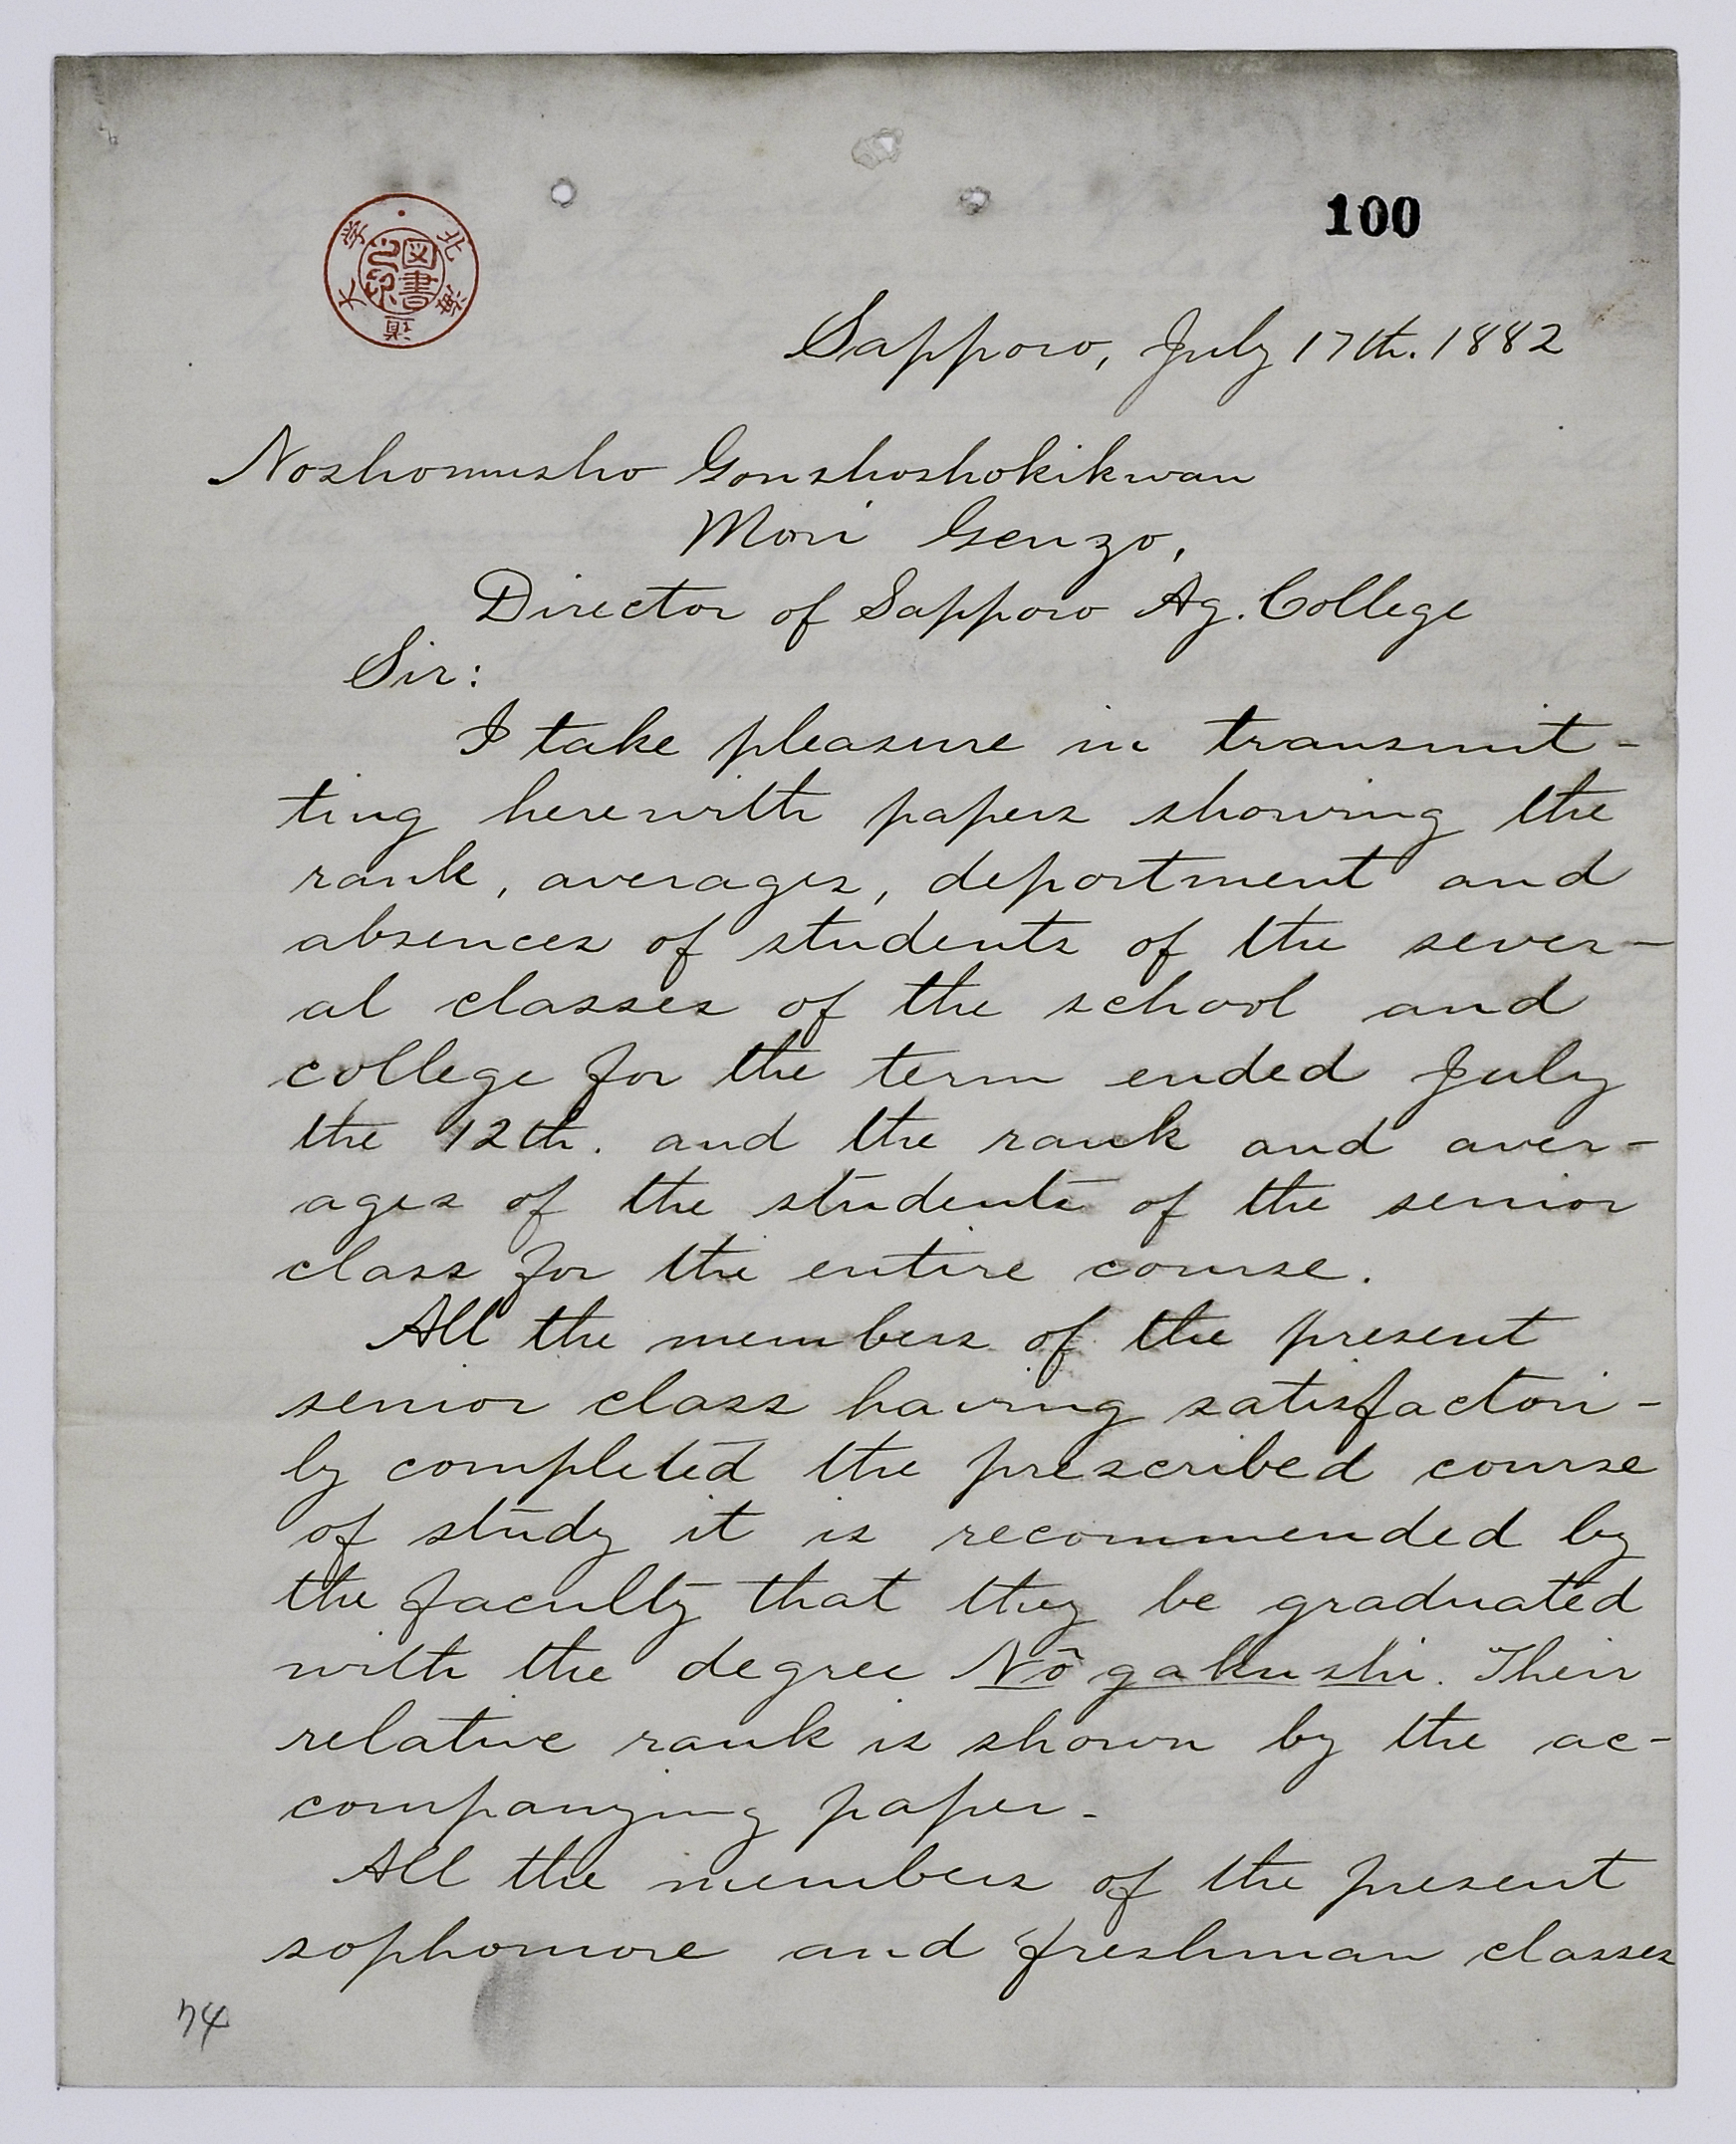 100
北海道大学
図書之印
Sapporo, July 17th. 1882
Noshomusho Gonshoshokikwan
Mori Genzo,
Director of Sapporo Ag. College
Sir:
I take pleasure in transmit-
ting herewith papers showing the
rank, averages, deportment and
absences of students of the sever-
al classes of the school and
college for the term ended July
the 12th. and the rank and aver-
ages of the students of the senior
class for the entire course.
All the members of the present
senior class having satisfactori-
ly completed the prescribed course
of study it is recommended by
the faculty that they be graduated
with the degree Nō gaku shi. Their
relative rank is shown by the ac-
companying paper.
All the members of the present
sophomore and freshman classes
74